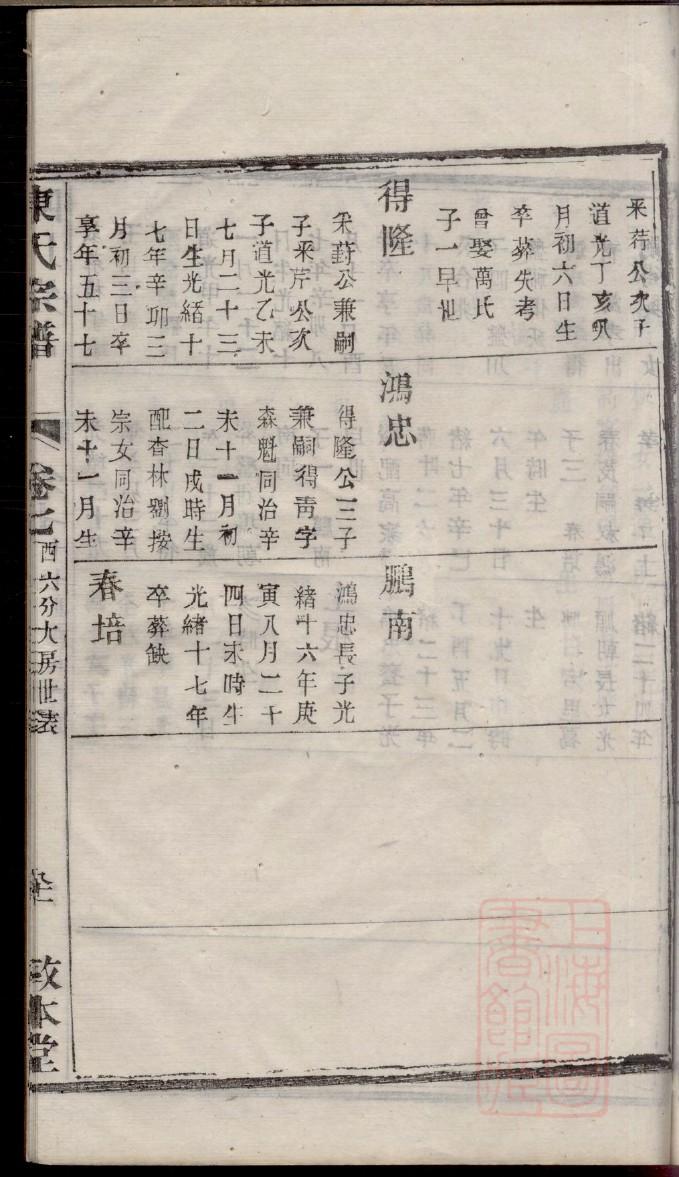 采芹公次子
道光丁亥八
月初六日生
卒葬失考
曾娶萬氏
子一早世
得隆
采蔚公兼嗣
子采芹公次
子道光乙未
七月二十三
日生光緒十
七年辛卯三
月初三日卒
享年五十七
鴻忠
得隆公三子
兼嗣得靑字
森魁同治辛
未十一月初
二日戌時生
配杏林劉按
宗女同治辛
未十一月生
鵬南
鴻忠長子光
緒十六年庚
寅八月二十
四日未時生
光緒十七年
卒葬缺
春培
陳氏宗譜
卷七
西六分大房世表
敦本堂
上海圖書館藏